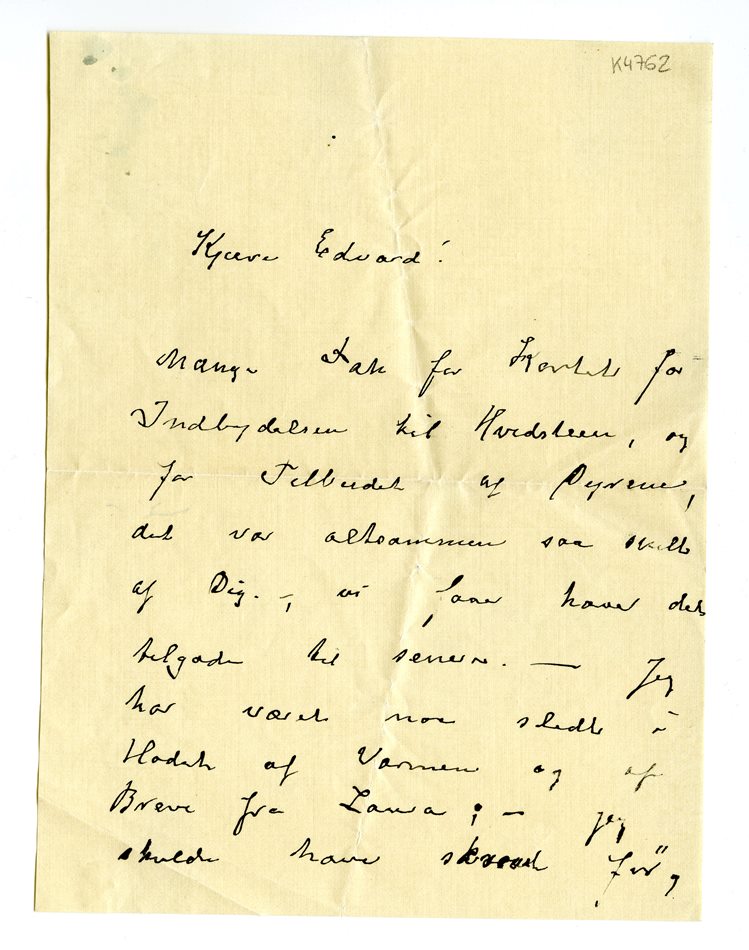 K4762
Kjære Edvard!
Mange Tak for Kortet for
Indbydelsen til Hvidsteen, og
for Tilbudet af Dyrene,
det var altsammen saa snilt
af Dig. –, vi faar have det
tilgode til senere. — Jeg
har været noe sledt i
Hodet af Varmen og af
Breve fra Laura; – jeg
skulde have skrevet før,